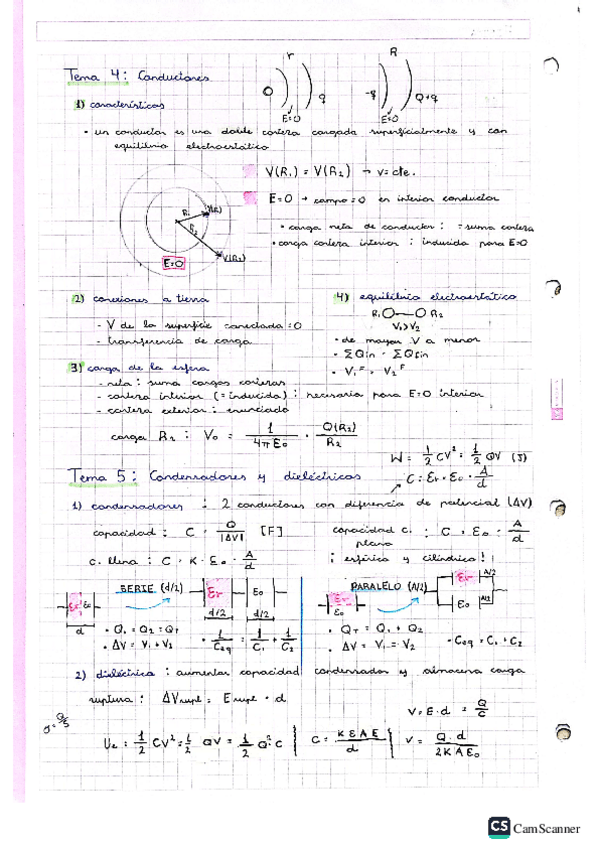 r R
Tema 4: Conductores
0 q -q Q+q
1) características E=0 E=0
• un conductor es una doble corteza cargada superficialmente y con
equilibrio electroestático
V(R₁) = V(R₂) → V=cte.
E=0 → campo=0 en interior conductor
R₁ V(R₁)
R₂
• carga neta de conductor : = suma corteza
• carga corteza interior : inducida para E=0
V(R₂)
E=0
2) conexiones a tierra
- V de la superficie conectada = 0
- transferencia de carga
4) equilibrio electroestático
R₁ R₂
V₁>V₂
• de mayor V a menor
• ΣQin = ΣQfin
• V₁ᶠ = V₂ᶠ
3) carga de la esfera
- neta : suma cargas cortezas
- corteza interior (= inducida) : necesaria para E=0 interior
- corteza exterior : enunciado
carga R₂ : V₀ = 1/4πε₀ · Q(R₂)/R₂
W = 1/2 CV² = 1/2 QV (J)
C = εr · ε₀ · A/d
Tema 5: Condensadores y dieléctricos
1) condensadores : 2 conductores con diferencia de potencial (ΔV)
capacidad : C = Q/|ΔV| [F]
capacidad c. plano : C = ε₀ · A/d
c. llena : C = K · ε₀ · A/d
¡ esférico y cilíndrico ! !
SERIE (d/2) εr ε₀
εr ε₀ d d/2 d/2
PARALELO (A/2) εr A/2
εr ε₀ ε₀ A/2
• Q₁ = Q₂ = QT
• ΔV = V₁ + V₂
• 1/Ceq = 1/C₁ + 1/C₂
• QT = Q₁ + Q₂
• ΔV = V₁ = V₂
• Ceq = C₁ + C₂
2) dieléctrico : aumentar capacidad condensador y almacena carga
ruptura : ΔVrupt = Erupt · d
V = E · d = Q/C
σ = Q/S
Ue = 1/2 CV² = 1/2 QV = 1/2 Q² C
C = K ε A E/d
V = Q · d/2KAε₀
CS CamScanner